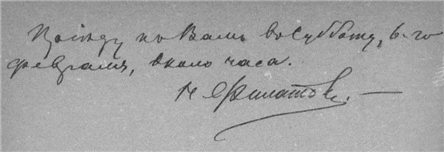 Пріѣду къ Вамъ въ субботу, 6-го
февраля, около часа.
Н Филатовъ.